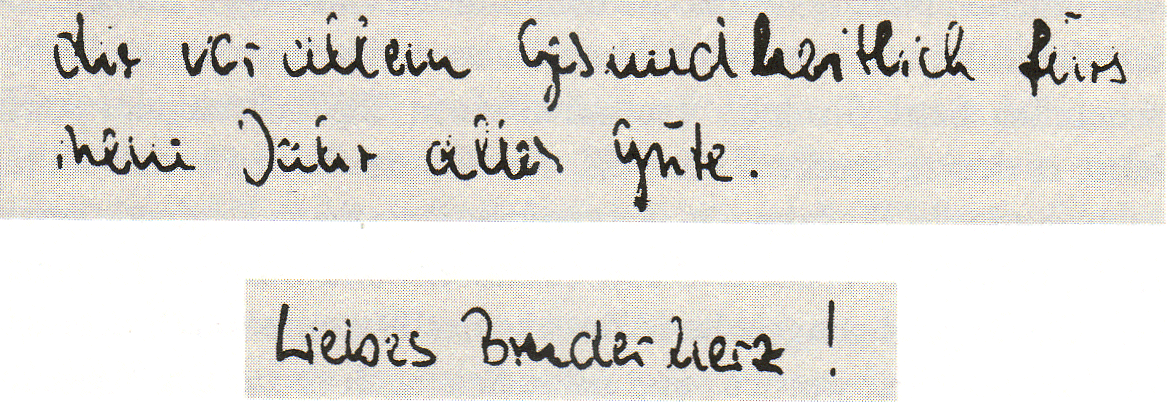 dir vor allem Gesundheitlich fürs
neue Jahr alles Gute.
Liebes Bruderherz!